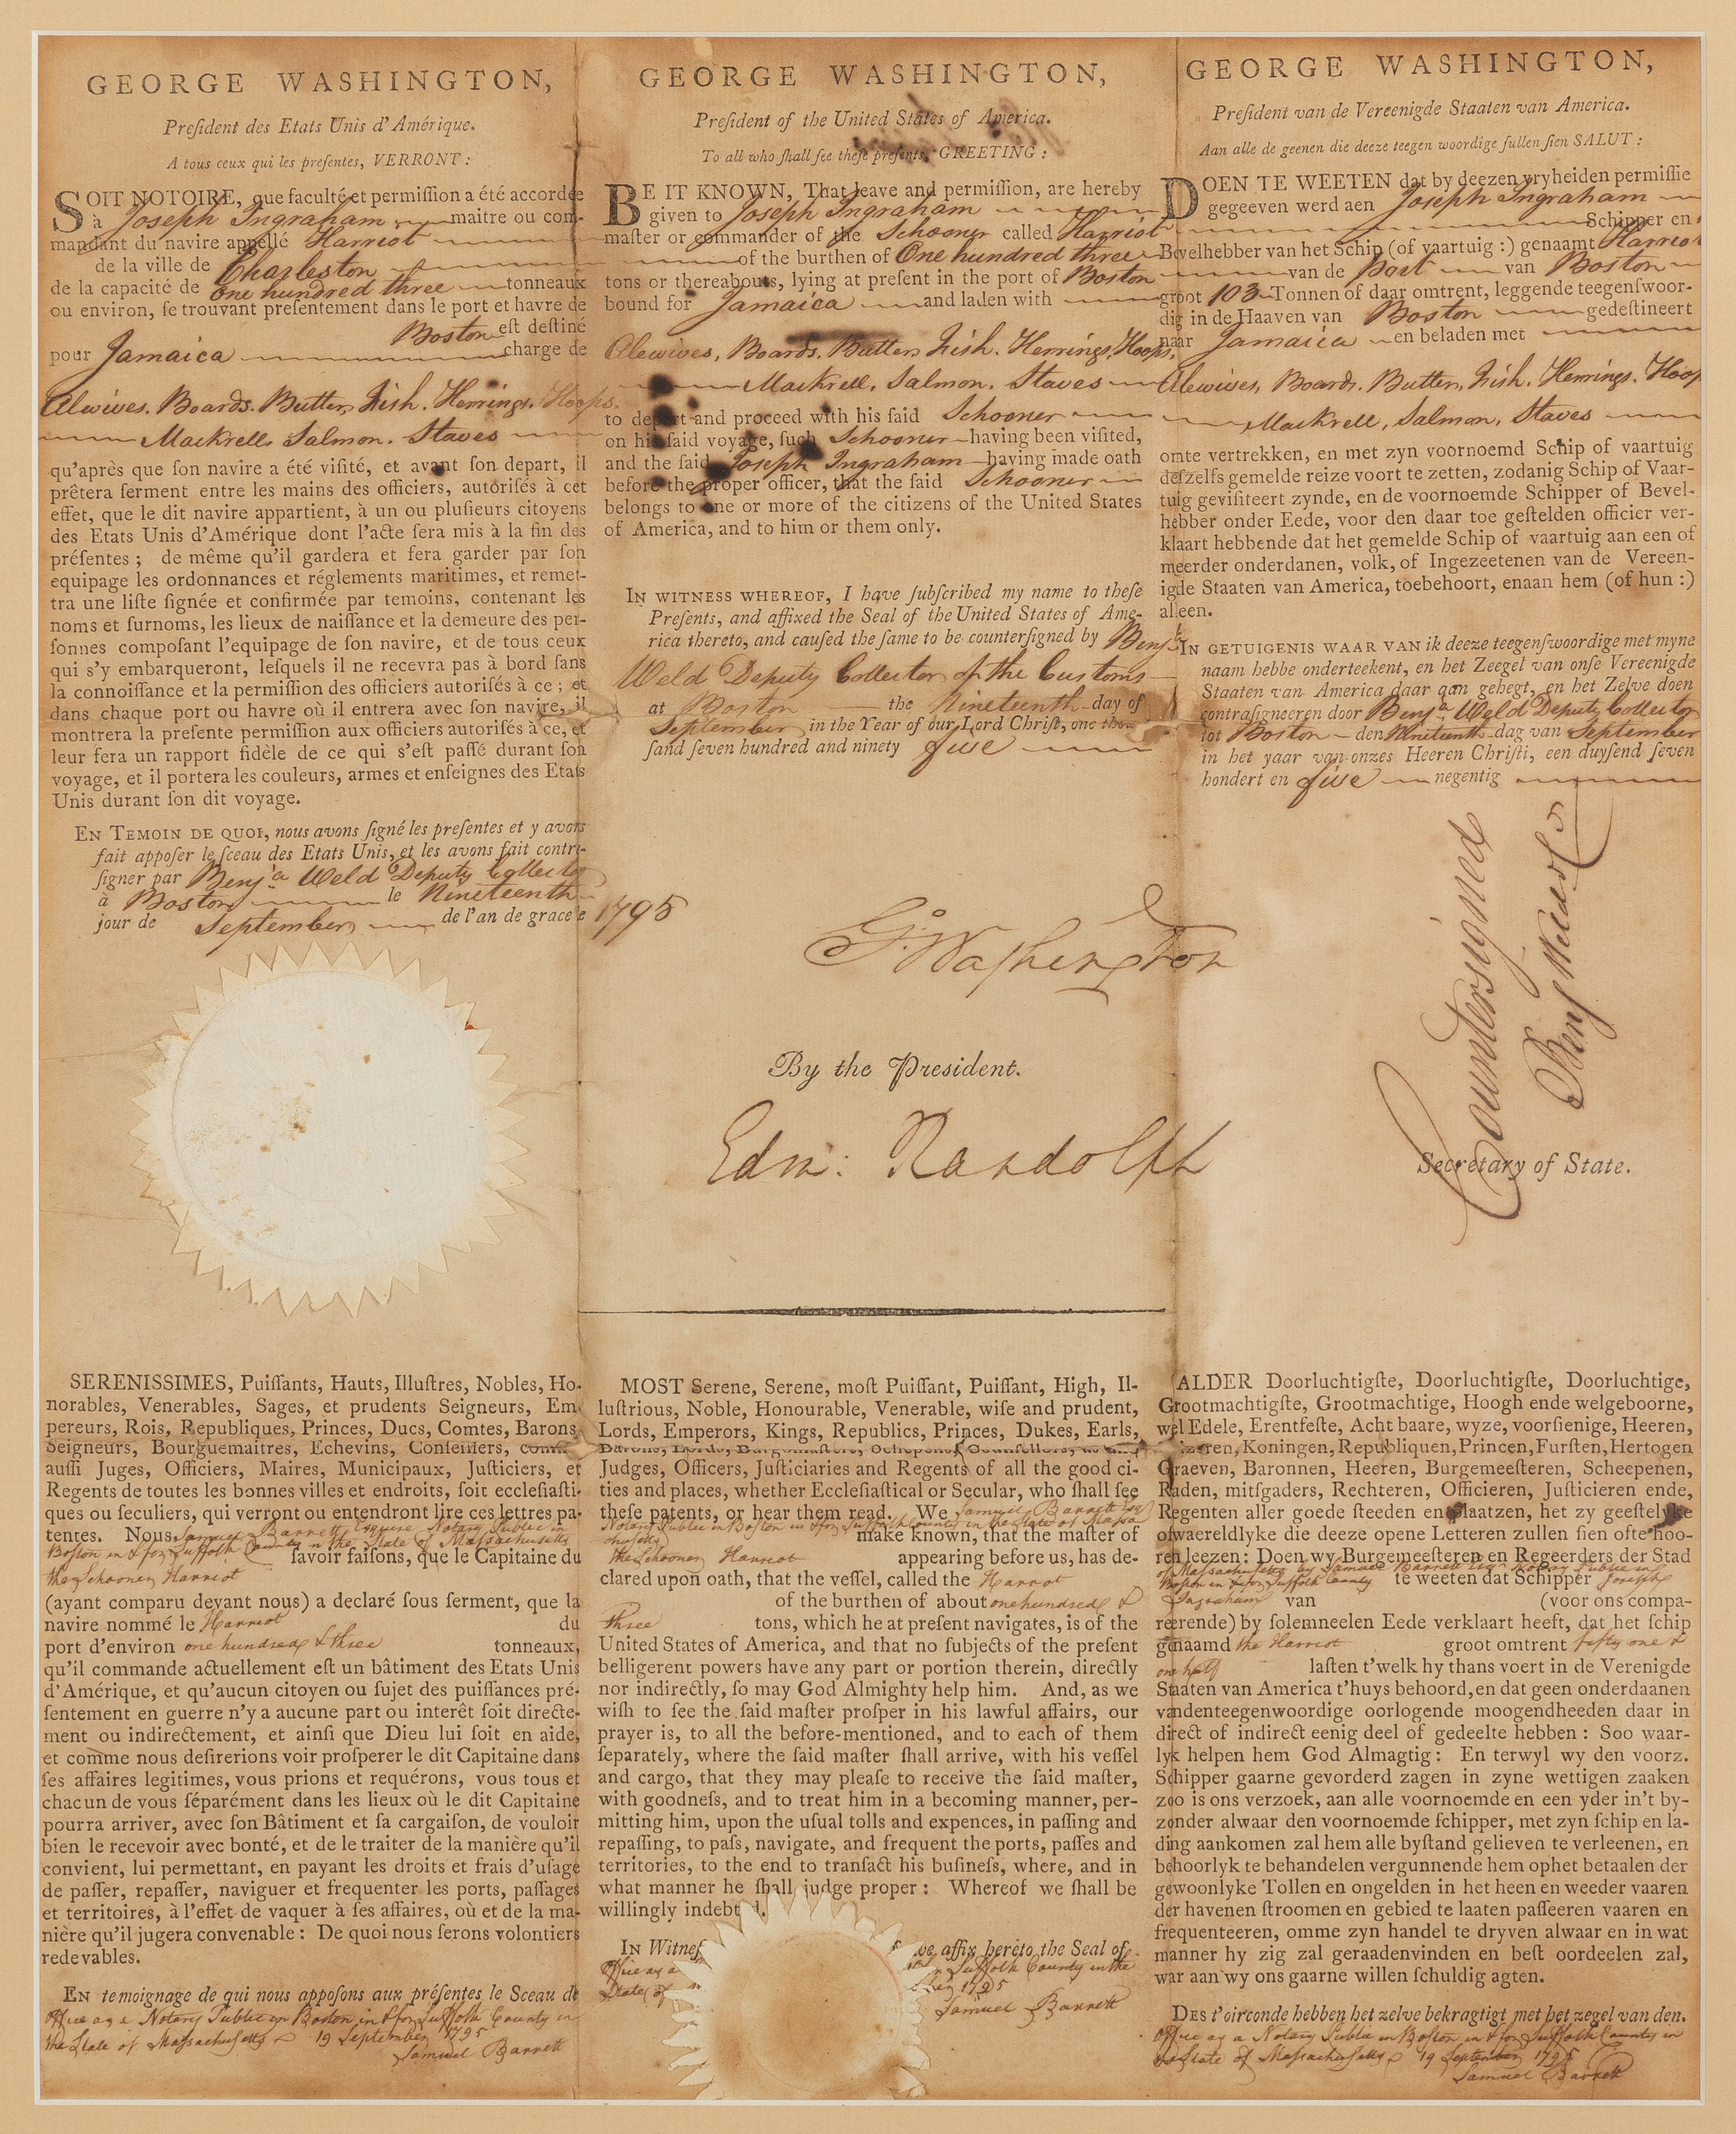 GEORGE WASHINGTON,
Preſident des Etats Unis d'Amérique.
A tous ceux qui les preſentes, VERRONT :
SOIT NOTOIRE, que faculté et permiſſion a été accordée
à Joseph Ingraham maitre ou com-
mandant du navire appellé Harriot
de la ville de Charleston
de la capacité de One hundred three tonneaux
ou environ, ſe trouvant preſentement dans le port et havre de
Boston eſt deſtiné
pour Jamaica charge de
Alewives. Boards. Butter, Fish. Herrings. Hoops.
Mackrell, Salmon. Staves
qu'après que ſon navire a été viſité, et avant ſon depart, il
prêtera ſerment entre les mains des officiers, autoriſés à cet
effet, que le dit navire appartient, à un ou pluſieurs citoyens
des Etats Unis d'Amérique dont l'acte ſera mis à la fin des
préſentes ; de même qu'il gardera et fera garder par ſon
equipage les ordonnances et réglements maritimes, et remet-
tra une liſte ſignée et confirmée par temoins, contenant les
noms et ſurnoms, les lieux de naiſſance et la demeure des per-
ſonnes compoſant l'equipage de ſon navire, et de tous ceux
qui s'y embarqueront, leſquels il ne recevra pas à bord ſans
la connoiſſance et la permiſſion des officiers autoriſés à ce ; et
dans chaque port ou havre où il entrera avec ſon navire, il
montrera la preſente permiſſion aux officiers autoriſés à ce, et
leur fera un rapport fidèle de ce qui s'eſt paſſé durant ſon
voyage, et il portera les couleurs, armes et enſeignes des Etats
Unis durant ſon dit voyage.
EN TEMOIN DE QUOI, nous avons ſigné les preſentes et y avons
fait appoſer le ſceau des Etats Unis, et les avons fait contre-
ſigner par Benjª Weld Deputy Collector
à Boston le Nineteenth
jour de September de l'an de grace le 1795
GEORGE WASHINGTON,
Preſident of the United States of America.
To all who ſhall ſee theſe preſents, GREETING :
BE IT KNOWN, That leave and permiſſion, are hereby
given to Joseph Ingraham
maſter or commander of the Schooner called Harriot
of the burthen of One hundred three
tons or thereabouts, lying at preſent in the port of Boston
bound for Jamaica and laden with
Alewives, Boards. Butter, Fish. Herrings, Hoops,
Mackrell, Salmon. Staves
to depart and proceed with his ſaid Schooner
on his ſaid voyage, ſuch Schooner having been viſited,
and the ſaid Joseph Ingraham having made oath
before the proper officer, that the ſaid Schooner
belongs to one or more of the citizens of the United States
of America, and to him or them only.
IN WITNESS WHEREOF, I have ſubſcribed my name to theſe
Preſents, and affixed the Seal of the United States of Ame-
rica thereto, and cauſed the ſame to be counterſigned by Benjª
Weld Deputy Collector of the Customs
at Boston the Nineteenth day of
September in the Year of our Lord Chriſt, one thou-
ſand ſeven hundred and ninety five
GEORGE WASHINGTON,
Preſident van de Vereenigde Staaten van America.
Aan alle de geenen die deeze teegen woordige ſullen ſien SALUT :
DOEN TE WEETEN dat by deezen vryheiden permiſſie
gegeeven werd aen Joseph Ingraham
Schipper en
Bevelhebber van het Schip (of vaartuig :) genaamt Harriot
van de Port van Boston
groot 103 Tonnen of daar omtrent, leggende teegenſwoor-
dig in de Haaven van Boston gedeſtineert
naar Jamaica en beladen met
Alewives, Boards. Butter, Fish. Herrings. Hoop
Mackrell, Salmon, Staves
omte vertrekken, en met zyn voornoemd Schip of vaartuig
deſzelfs gemelde reize voort te zetten, zodanig Schip of Vaar-
tuig geviſiteert zynde, en de voornoemde Schipper of Bevel-
hebber onder Eede, voor den daar toe geſtelden officier ver-
klaart hebbende dat het gemelde Schip of vaartuig aan een of
meerder onderdanen, volk, of Ingezeetenen van de Vereen-
igde Staaten van America, toebehoort, enaan hem (of hun :)
alleen.
IN GETUIGENIS WAAR VAN ik deeze teegenſwoordige met myne
naam hebbe onderteekent, en het Zeegel van onſe Vereenigde
Staaten van America daar aan gehegt, en het Zelve doen
contraſigneeren door Benjª Weld Deputy Collector
tot Boston den Nineteenth dag van September
in het yaar van onzes Heeren Chriſti, een duyſend ſeven
hondert en five negentig
G. Washington
By the Preſident.
Edm: Randolph
Secretary of State.
Countersigned
Benj Weld
SERENISSIMES, Puiſſants, Hauts, Illuſtres, Nobles, Ho-
norables, Venerables, Sages, et prudents Seigneurs, Em-
pereurs, Rois, Republiques, Princes, Ducs, Comtes, Barons,
Seigneurs, Bourguemaitres, Echevins, Conſeillers, comme
auſſi Juges, Officiers, Maires, Municipaux, Juſticiers, et
Regents de toutes les bonnes villes et endroits, ſoit eccleſiaſti-
ques ou ſeculiers, qui verront ou entendront lire ces lettres pa-
tentes. Nous Samuel Barrett Esquire Notary Public in
Boston in & for Suffolk County in the State of Massachusetts
ſavoir faiſons, que le Capitaine du
the Schooner Harriot
(ayant comparu devant nous) a déclaré ſous ſerment, que la
navire nommé le Harriot du
port d'environ one hundred & three tonneaux,
qu'il commande actuellement eſt un bâtiment des Etats Unis
d'Amérique, et qu'aucun citoyen ou ſujet des puiſſances pré-
ſentement en guerre n'y a aucune part ou interêt ſoit directe-
ment ou indirectement, et ainſi que Dieu lui ſoit en aide,
et comme nous deſirerions voir proſperer le dit Capitaine dans
ſes affaires legitimes, vous prions et requérons, vous tous et
chacun de vous ſéparément dans les lieux où le dit Capitaine
pourra arriver, avec ſon Bâtiment et ſa cargaiſon, de vouloir
bien le recevoir avec bonté, et de le traiter de la manière qu'il
convient, lui permettant, en payant les droits et frais d'uſage
de paſſer, repaſſer, naviguer et frequenter les ports, paſſages
et territoires, à l'effet de vaquer à ſes affaires, où et de la ma-
nière qu'il jugera convenable : De quoi nous ſerons volontiers
redevables.
EN temoignage de qui nous appoſons aux préſentes le Sceau de
Office as a Notary Public in Boston in & for Suffolk County in
the State of Massachusetts 19 September 1795
Samuel Barrett
MOST Serene, Serene, moſt Puiſſant, Puiſſant, High, Il-
luſtrious, Noble, Honourable, Venerable, wiſe and prudent,
Lords, Emperors, Kings, Republics, Princes, Dukes, Earls,
Barons, Lords, Burgomaſters, Schepens, Counſellors, as alſo
Judges, Officers, Juſticiaries and Regents of all the good ci-
ties and places, whether Eccleſiaſtical or Secular, who ſhall ſee
theſe patents, or hear them read. We Samuel Barrett Esq
Notary Public in Boston in & for Suffolk County in the State of Massa
chusetts make known, that the maſter of
the Schooner Harriot appearing before us, has de-
clared upon oath, that the veſſel, called the Harriot
of the burthen of about one hundred &
three tons, which he at preſent navigates, is of the
United States of America, and that no ſubjects of the preſent
belligerent powers have any part or portion therein, directly
nor indirectly, ſo may God Almighty help him. And, as we
wiſh to ſee the ſaid maſter proſper in his lawful affairs, our
prayer is, to all the before-mentioned, and to each of them
ſeparately, where the ſaid maſter ſhall arrive, with his veſſel
and cargo, that they may pleaſe to receive the ſaid maſter,
with goodneſs, and to treat him in a becoming manner, per-
mitting him, upon the uſual tolls and expences, in paſſing and
repaſſing, to paſs, navigate, and frequent the ports, paſſes and
territories, to the end to tranſact his buſineſs, where, and in
what manner he ſhall judge proper : Whereof we ſhall be
willingly indebted.
IN Witneſ we affix hereto the Seal of
Office as a Suffolk County in the
State of 1795
Samuel Barrett
ALDER Doorluchtigſte, Doorluchtigſte, Doorluchtige,
Grootmachtigſte, Grootmachtige, Hoogh ende welgeboorne,
wel Edele, Erentfeſte, Acht baare, wyze, voorſienige, Heeren,
Koningen, Republiquen, Princen, Furſten, Hertogen
Graeven, Baronnen, Heeren, Burgemeeſteren, Scheepenen,
Raden, mitſgaders, Rechteren, Officieren, Juſticieren ende,
Regenten aller goede ſteeden en plaatzen, het zy geeſtelyke
ofwaereldlyke die deeze opene Letteren zullen ſien ofte hoo-
ren leezen: Doen wy Burgemeeſteren en Regeerders der Stad
of Massachusetts by Samuel Barrett Esq. Notary Public in
Boston in & for Suffolk County te weeten dat Schipper Joseph
Ingraham van (voor ons compa-
reerende) by ſolemneelen Eede verklaart heeft, dat het ſchip
genaamd the Harriot groot omtrent fifty one &
one half laſten t'welk hy thans voert in de Verenigde
Staaten van America t'huys behoord, en dat geen onderdaanen
vandenteegenwoordige oorlogende moogendheeden daar in
direct of indirect eenig deel of gedeelte hebben : Soo waar-
lyk helpen hem God Almagtig : En terwyl wy den voorz.
Schipper gaarne gevorderd zagen in zyne wettigen zaaken
zoo is ons verzoek, aan alle voornoemde en een yder in't by-
zonder alwaar den voornoemde ſchipper, met zyn ſchip en la-
ding aankomen zal hem alle byſtand gelieven te verleenen, en
behoorlyk te behandelen vergunnende hem ophet betaalen der
gewoonlyke Tollen en ongelden in het heen en weeder vaaren
der havenen ſtroomen en gebied te laaten paſſeeren vaaren en
frequenteeren, omme zyn handel te dryven alwaar en in wat
manner hy zig zal geraadenvinden en beſt oordeelen zal,
war aan wy ons gaarne willen ſchuldig agten.
DES t'oirconde hebben het zelve bekragtigt met het zegel van den.
Office as a Notary Public in Boston in & for Suffolk County in
the State of Massachusetts 19 September 1795
Samuel Barrett